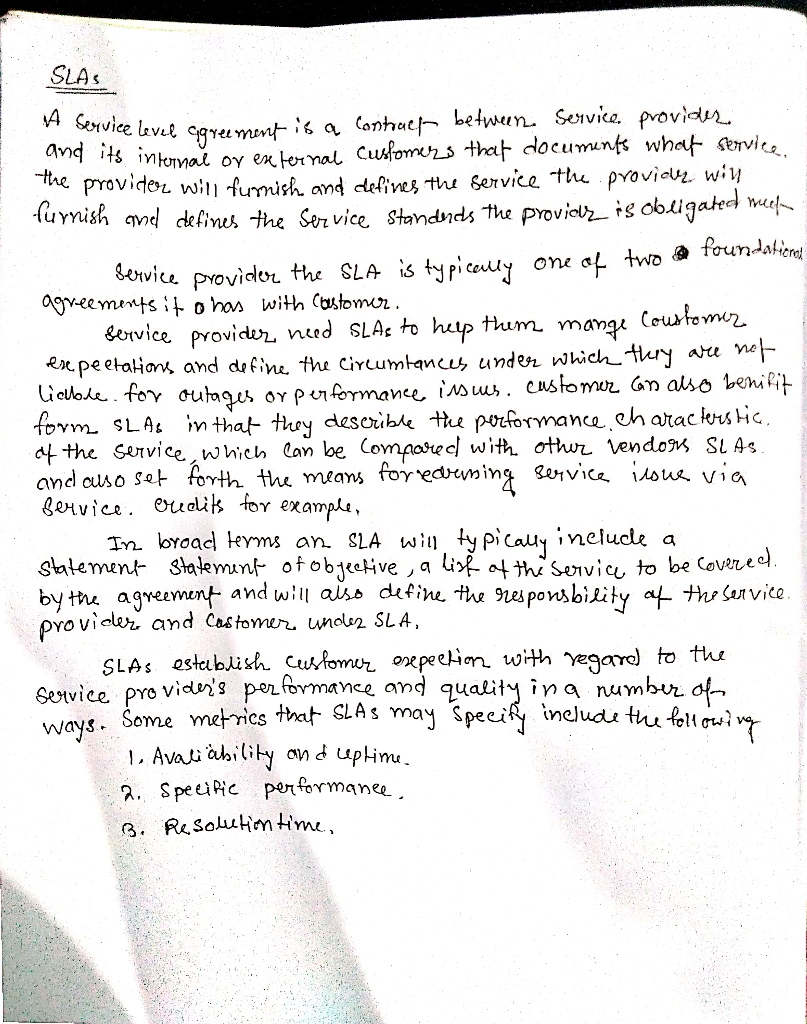 SLAs
A Service level agreement is a Contract between Service provider
and its internal or external Customers that documents what service.
the provider will furnish and defines the service the provider will
furnish and defines the Service standrds the provider is obligated meet
Service provider the SLA is typically one of two foundational
agreements it has with Customer.
Service provider need SLAs to help them mange Coustomer
expectations and define the circumtances under which they are not
liable. for outages or performance issues. customer Can also benifit
form SLAs in that they describle the performance characterstic.
of the service, which Can be Compared with other vendors SLAs.
and also set forth the means for redressing service issue via
Service. credits for example,
In broad terms an SLA will typically include a
Statement Statement of objective, a list of the Service to be Covered.
by the agreement and will also define the responsbility of the Service
provider and Castomer under SLA.
SLAs establish Customer expection with regard to the
Service provider's performance and quality in a number of
ways. Some metrics that SLAs may Specify include the following
1. Avaliability and uptime.
2. Specific performance.
3. Resolution time.